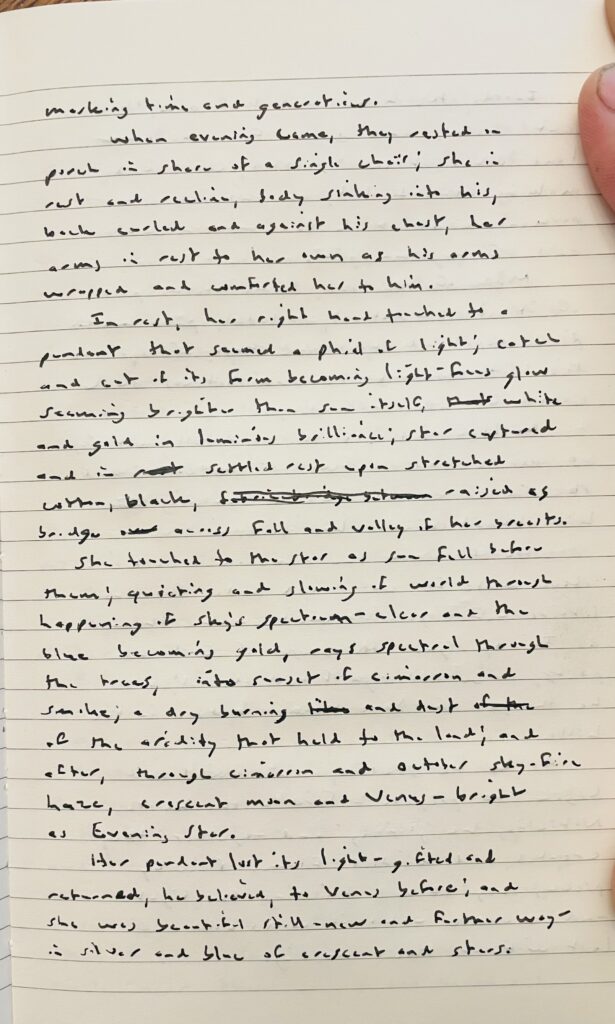 marking time and generations.
When evening came, they rested on
porch in share of a single chair; she in
rest and recline, body sinking into his,
back curled and against his chest, her
arms in rest to her own as his arms
wrapped and comforted her to him.
In rest, her right hand touched to a
pendant that seemed a phial of light; catch
and cut of its form becoming light-focus glow
seeming brighter than sun itself, white
and gold in luminous brilliance; star captured
and in settled rest upon stretched
cotton, black, raised as
bridge across fall and valley of her breasts.
She touched to the star as sun fell before
them; quieting and slowing of world through
happening of sky's spectrum - clear and the
blue becoming gold, rays spectral through
the trees, into sunset of cimarron and
smoke; a dry burning and dust
of the aridity that held to the land; and
after, through cimarron and October sky-fire
haze, crescent moon and Venus - bright
as Evening Star.
Her pendant lost its light - gifted and
returned, he believed, to Venus before; and
she was beautiful still - new and further way -
in silver and blue of crescent and stars.